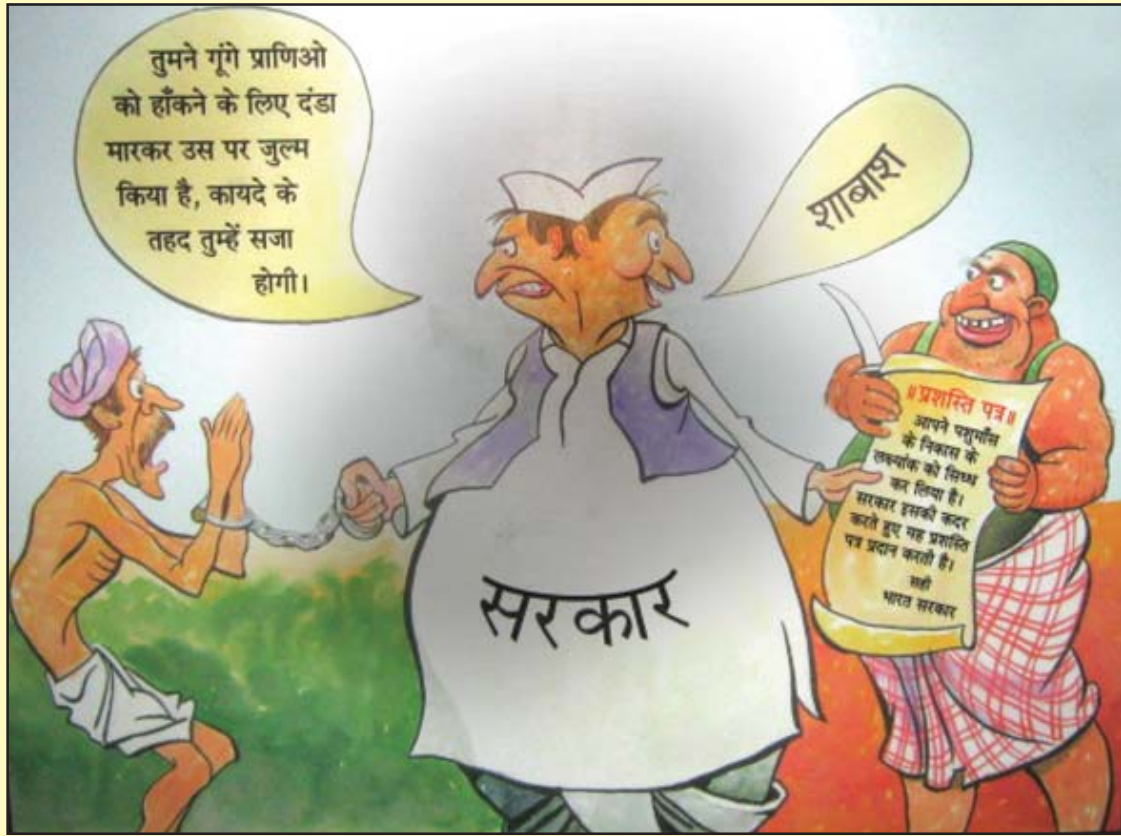 तुमने गूंगे प्राणिओ
को हाँकने के लिए दंडा
मारकर उस पर जुल्म
किया है, कायदे के
तहद तुम्हें सजा
होगी।
शाबाश
॥प्रशस्ति पत्र॥
आपने पशुमाँस
के निकास के
लक्ष्यांक को सिध्ध
कर लिया है।
सरकार इसकी कदर
करते हुए यह प्रशस्ति
पत्र प्रदान करती है।
सही
भारत सरकार
सरकार